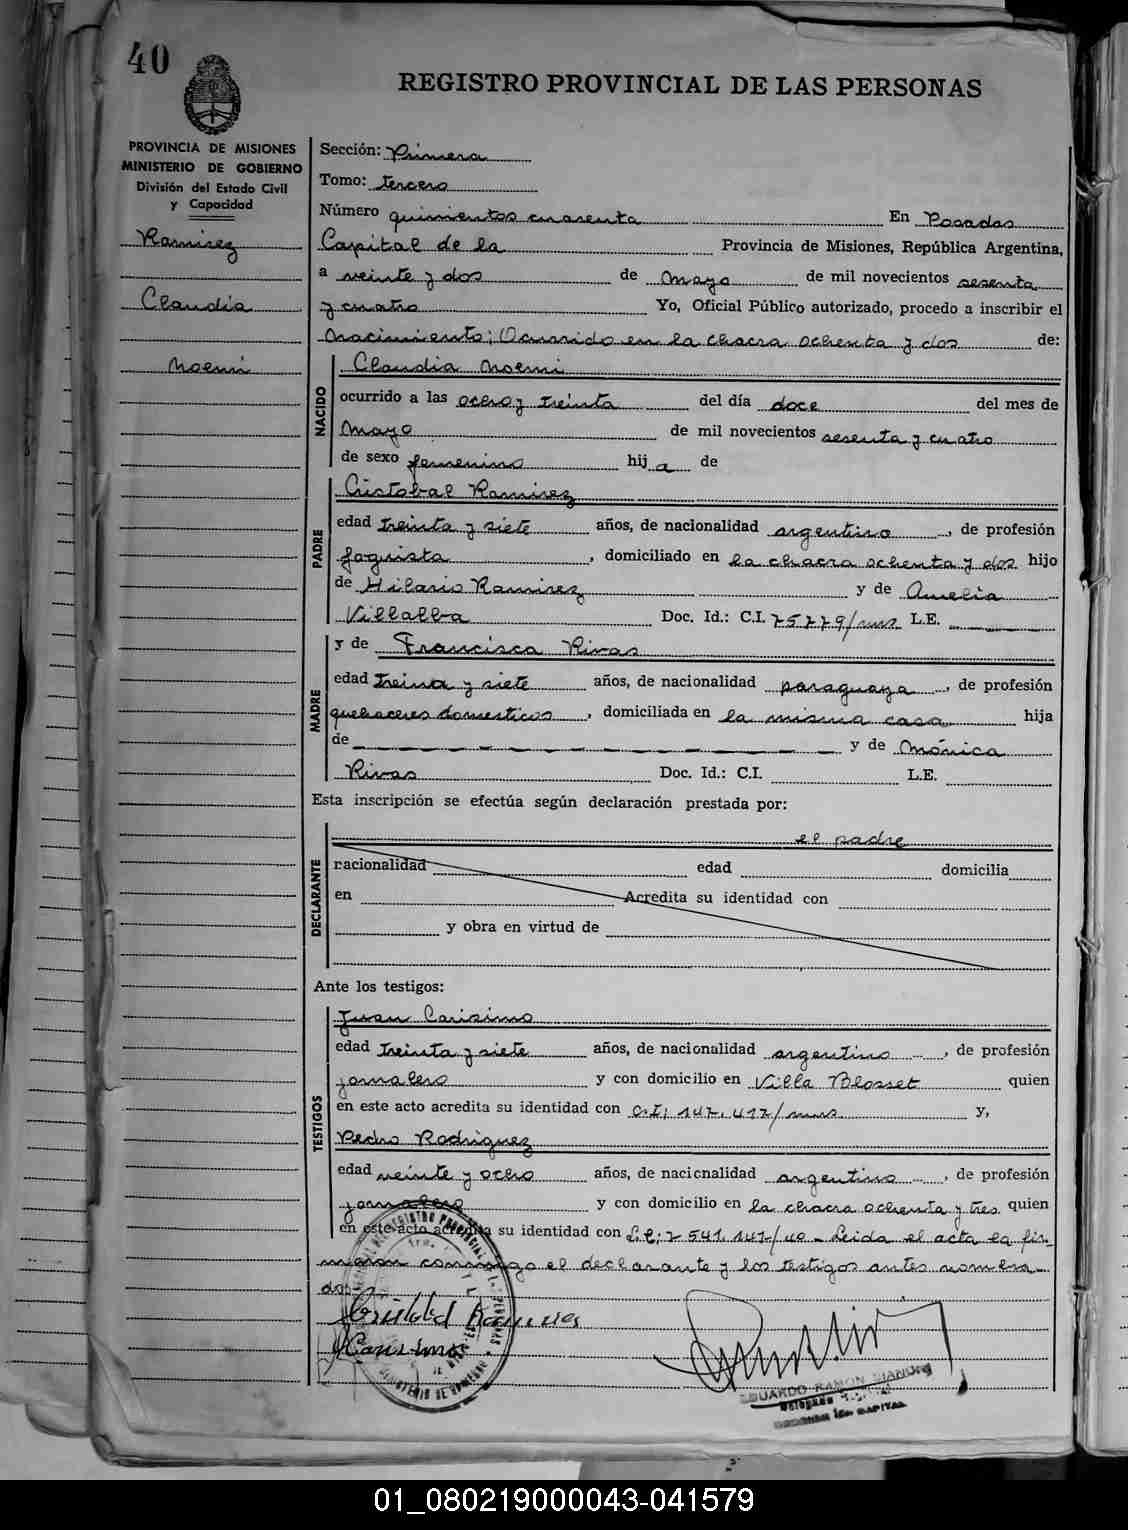 40
REGISTRO PROVINCIAL DE LAS PERSONAS
PROVINCIA DE MISIONES
MINISTERIO DE GOBIERNO
División del Estado Civil
y Capacidad
Ramirez
Claudia
Noemi
Sección: Primera
Tomo: tercero
Número quinientos cuarenta En Posadas
Capital de la Provincia de Misiones, República Argentina,
a veinte y dos de Mayo de mil novecientos sesenta
y cuatro Yo, Oficial Público autorizado, procedo a inscribir el
Nacimiento; Ocurrido en la chacra ochenta y dos de:
NACIDO
Claudia Noemi
ocurrido a las ocero y treinta del día doce del mes de
Mayo de mil novecientos sesenta y cuatro
de sexo femenino hij a de
PADRE
Cristobal Ramirez
edad treinta y siete años, de nacionalidad argentino, de profesión
foguista, domiciliado en la chacra ochenta y dos hijo
de Hilario Ramirez y de Amelia
Villalba Doc. Id.: C.I. 75779/mns L.E.
MADRE
y de Francisca Rivas
edad treinta y siete años, de nacionalidad paraguaya, de profesión
quehaceres domesticos, domiciliada en la misma casa hija
de y de Mónica
Rivas Doc. Id.: C.I. L.E.
Esta inscripción se efectúa según declaración prestada por:
DECLARANTE
el padre
racionalidad edad domicilia
en Acredita su identidad con
y obra en virtud de
Ante los testigos:
TESTIGOS
Juan Carisimo
edad treinta y siete años, de nacionalidad argentino, de profesión
jornalero y con domicilio en Villa Blosset quien
en este acto acredita su identidad con C.I; 147.417/mns y,
Pedro Rodriguez
edad veinte y ocho años, de nacionalidad argentino, de profesión
jornalero y con domicilio en la chacra ochenta y tres quien
en este acto acredita su identidad con L.E; 7 541.147/40 - Leida el acta la fir
maron conmigo el declarante y los testigos antes nombra-
dos
Cristobal Ramires
JCarisimo
EDUARDO RAMON
Delegado
CAPITAL
01_080219000043-041579